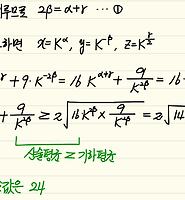 이므로 2β = α+γ ... ①
하면 x=K^α, y=K^-β, z=K^(γ/2)
^γ + 9·K^-2β = 16 K^(α+γ) + 9/K^2β = 16·
+ 9/K^2β ≥ 2√(16K^2β × 9/K^2β) = 2√14
산술평균 ≥ 기하평균
값은 24